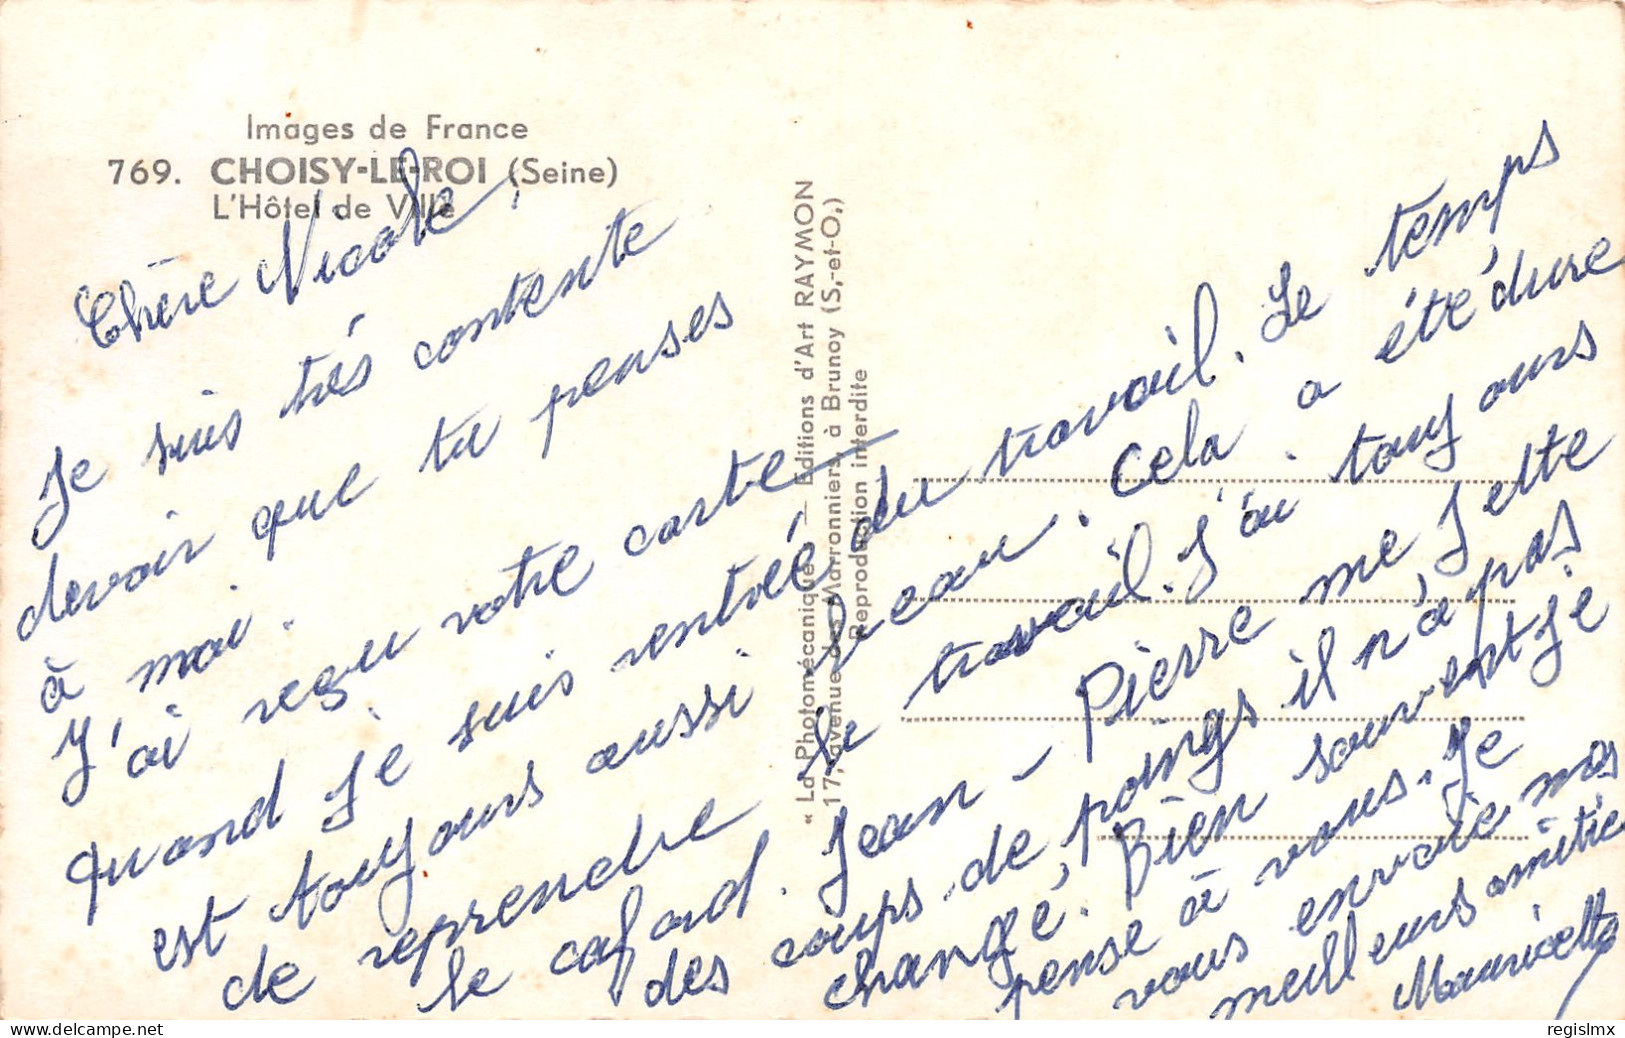 Images de France
769. CHOISY-LE-ROI (Seine)
L'Hôtel de Ville
Chère Nicole,
Je suis très contente
devoir que tu penses
à moi.
J'ai reçu votre carte
Quand je suis rentrée du travail. Le temps
est toujours aussi beau. Cela a été dure
de reprendre le travail. J'ai toujours
le cafard. Jean-Pierre me jette
des coups de poings il n'a pas
changé. Bien souvent je
pense à vous. Je
vous envoie mos
meilleurs amitié
Mauricette
« La Photomécanique » - Editions d'Art RAYMON
17, avenue des Marronniers à Brunoy (S.-et-O.)
Reproduction interdite
regislmx
delcampe.net